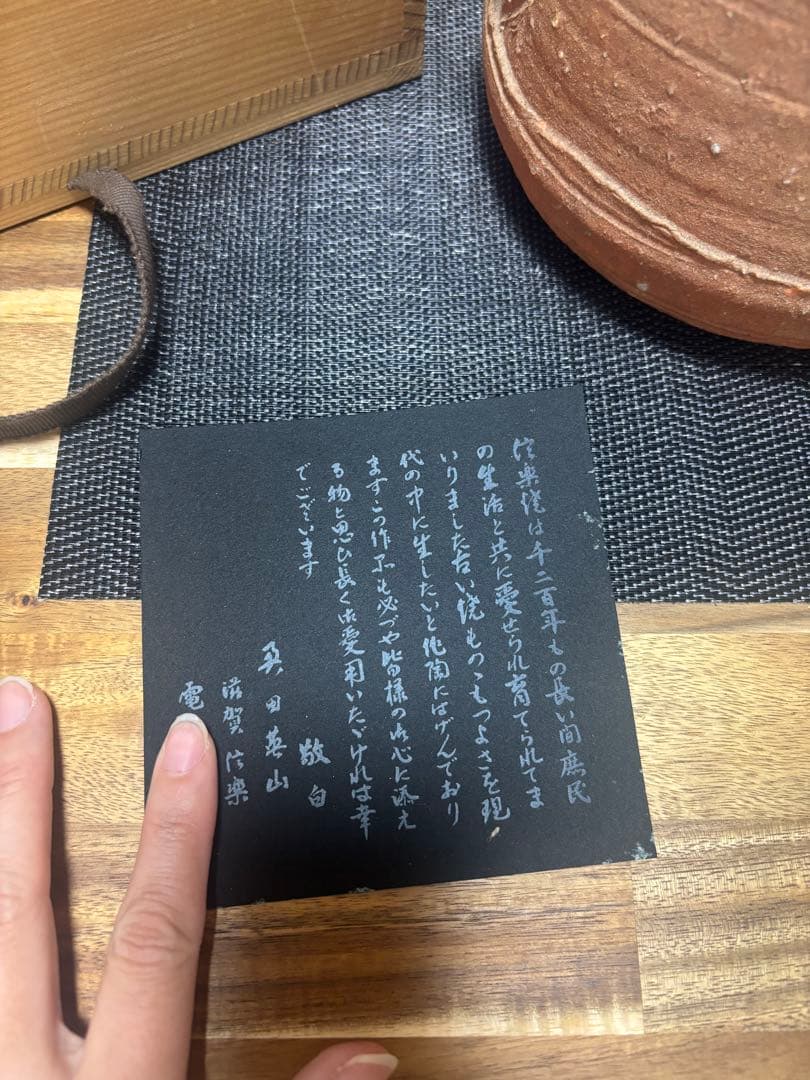 信楽焼は千二百年もの長い間庶民
の生活と共に愛せられ育てられてま
いりました古い焼ものゝもつよさを現
代の中に生したいと作陶にはげんでおり
ますこの作品も必づや皆様の御心に添え
る物と思ひ長く御愛用いたゞければ幸
でございます
敬白
奥田英山
滋賀信楽
電